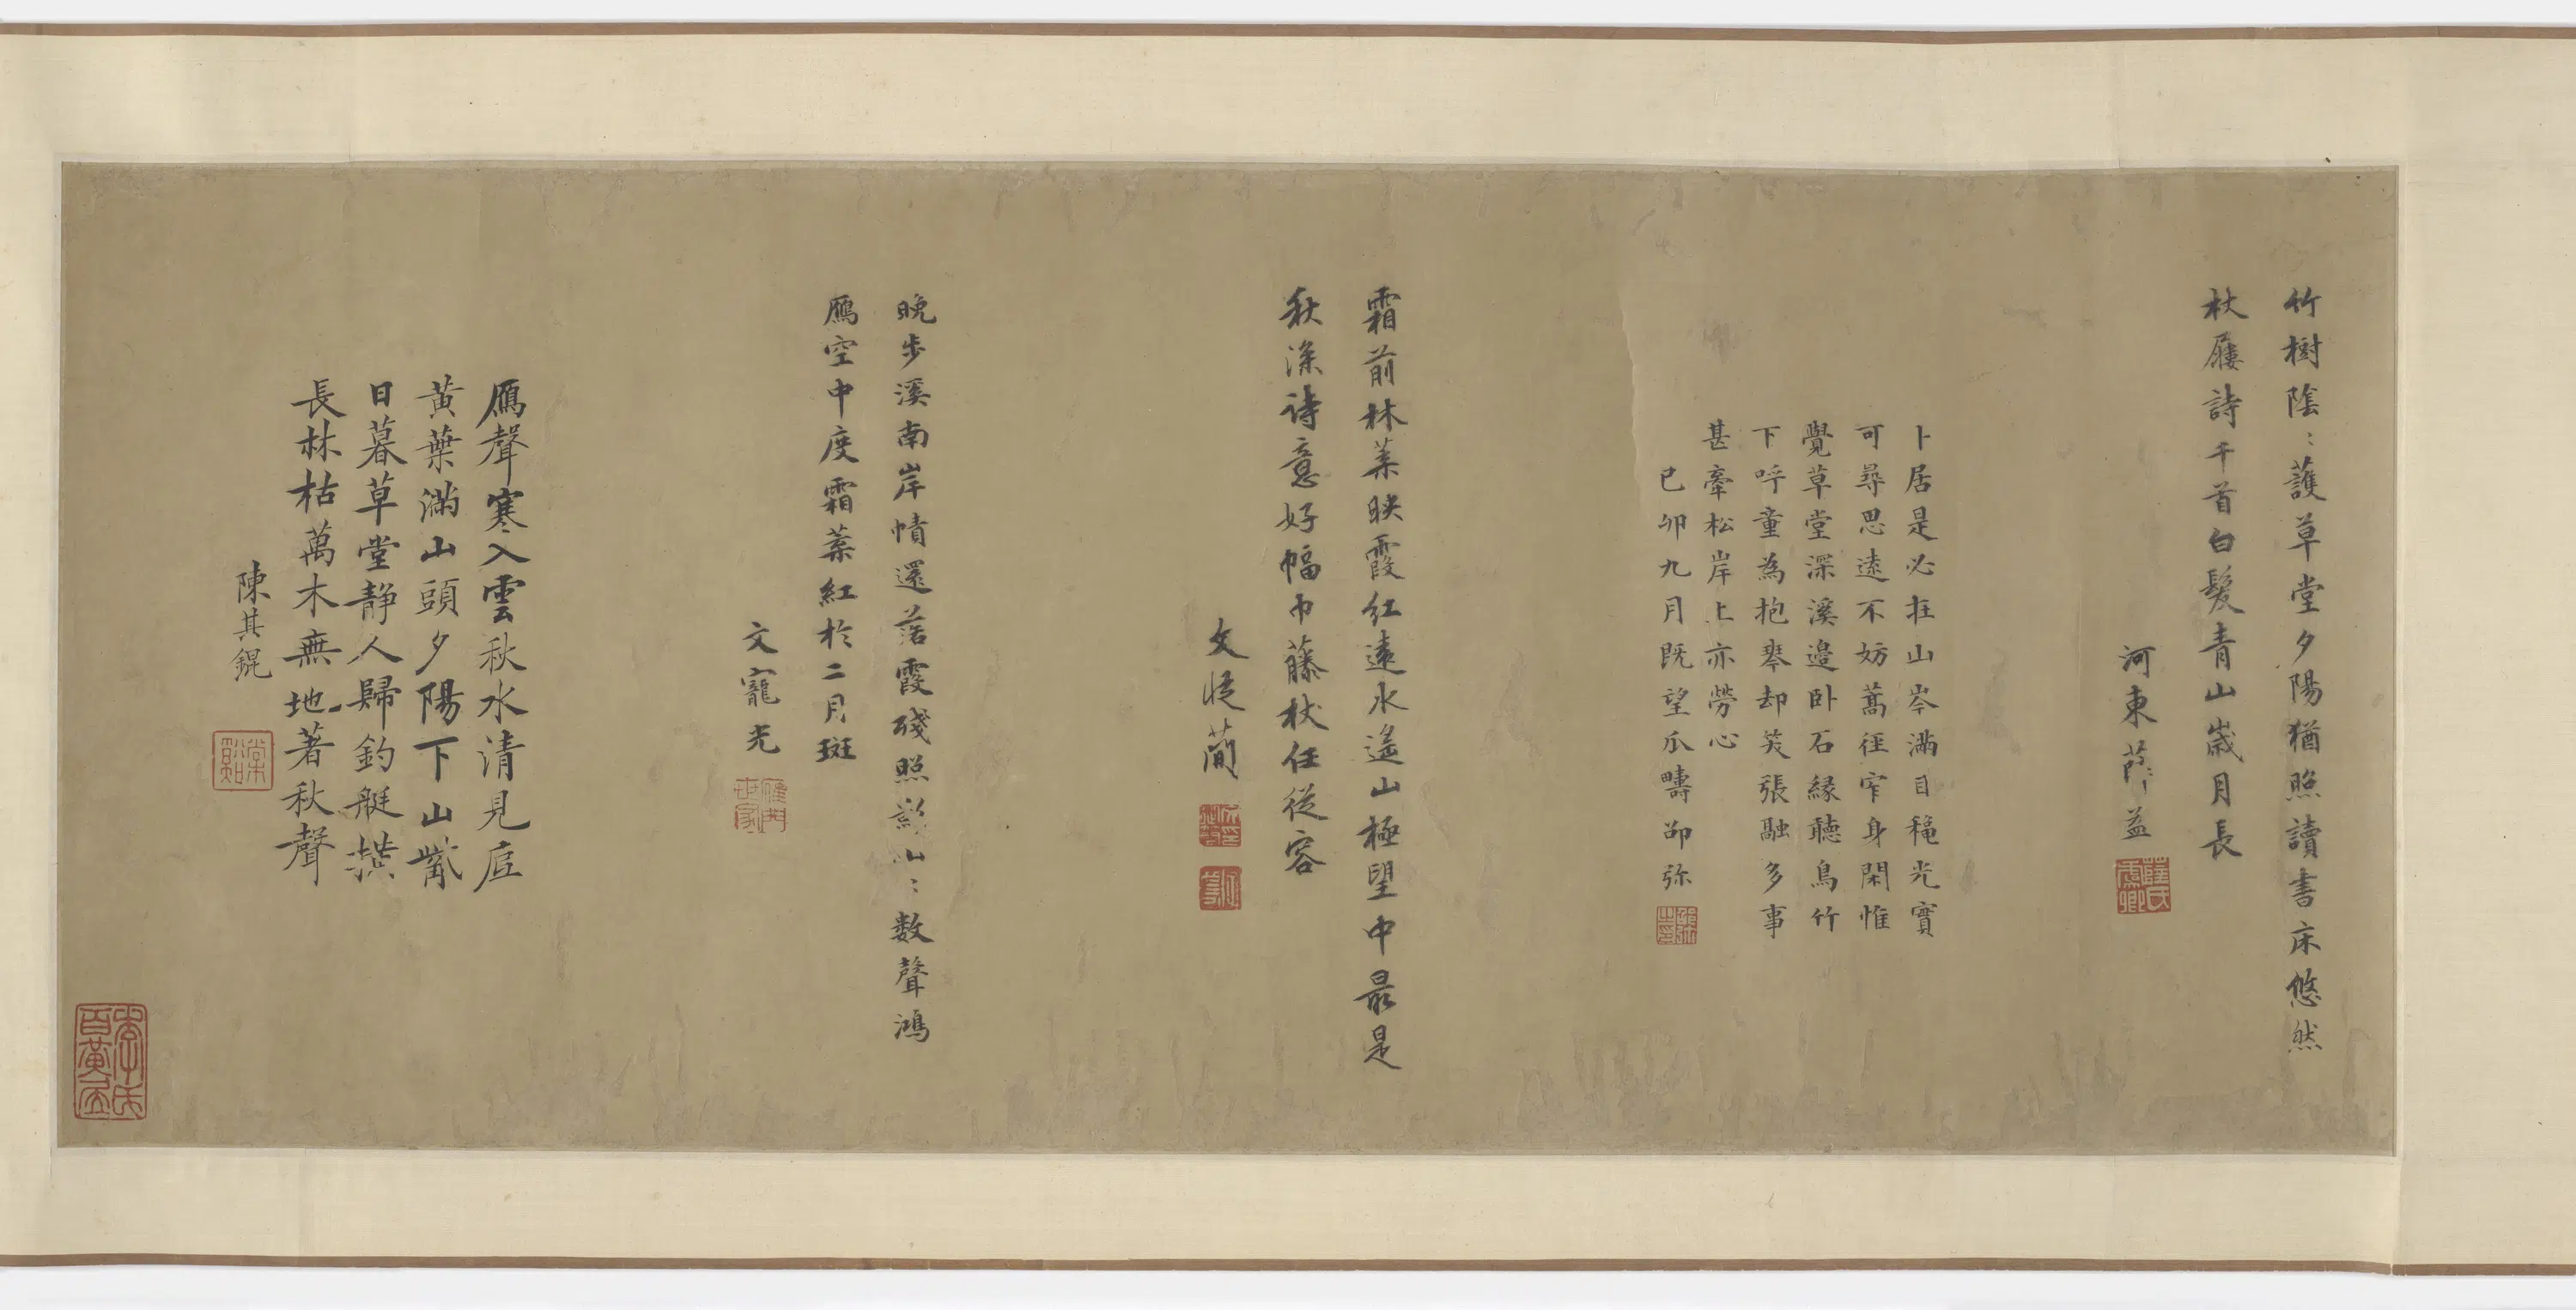 竹樹陰〻護草堂夕陽猶照讀書床悠然
杖屨詩千首白髮青山歲月長
河東薛益
卜居是必在山岑滿目穐光實
可尋思遠不妨蒿徑窄身閑惟
覺草堂深溪邊卧石緣聽鳥竹
下呼童為抱琴却笑張融多事
甚牽松岸上亦勞心
己卯九月既望瓜疇邵弥
霜前林葉映霞紅遠水遙山極望中最是
秋深詩意好幅巾藤杖任從容
文從簡
晚步溪南岸幘還落霞殘照影山〻數聲鴻
鴈空中度霜葉紅於二月斑
文寵光
鴈聲寒入雲秋水清見底
黃葉滿山頭夕陽下山觜
日暮草堂靜人歸釣艇橫
長林枯萬木無地著秋聲
陳其錕